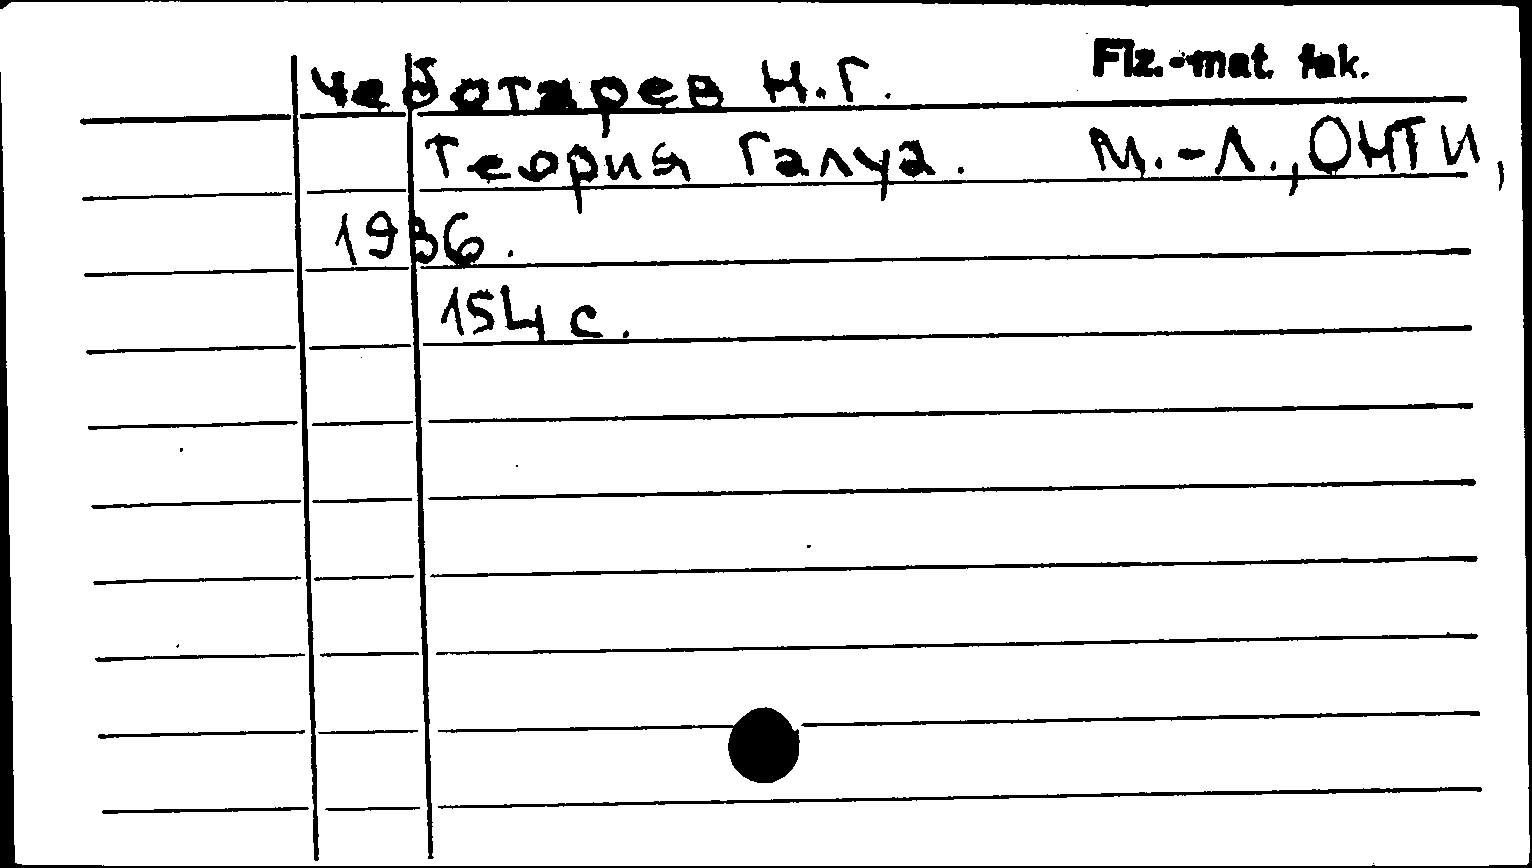 Чеботарев Н.Г. Fiz.-mat. fak.
Теория Галуа. М.-Л., ОНТИ,
1936.
154 с.